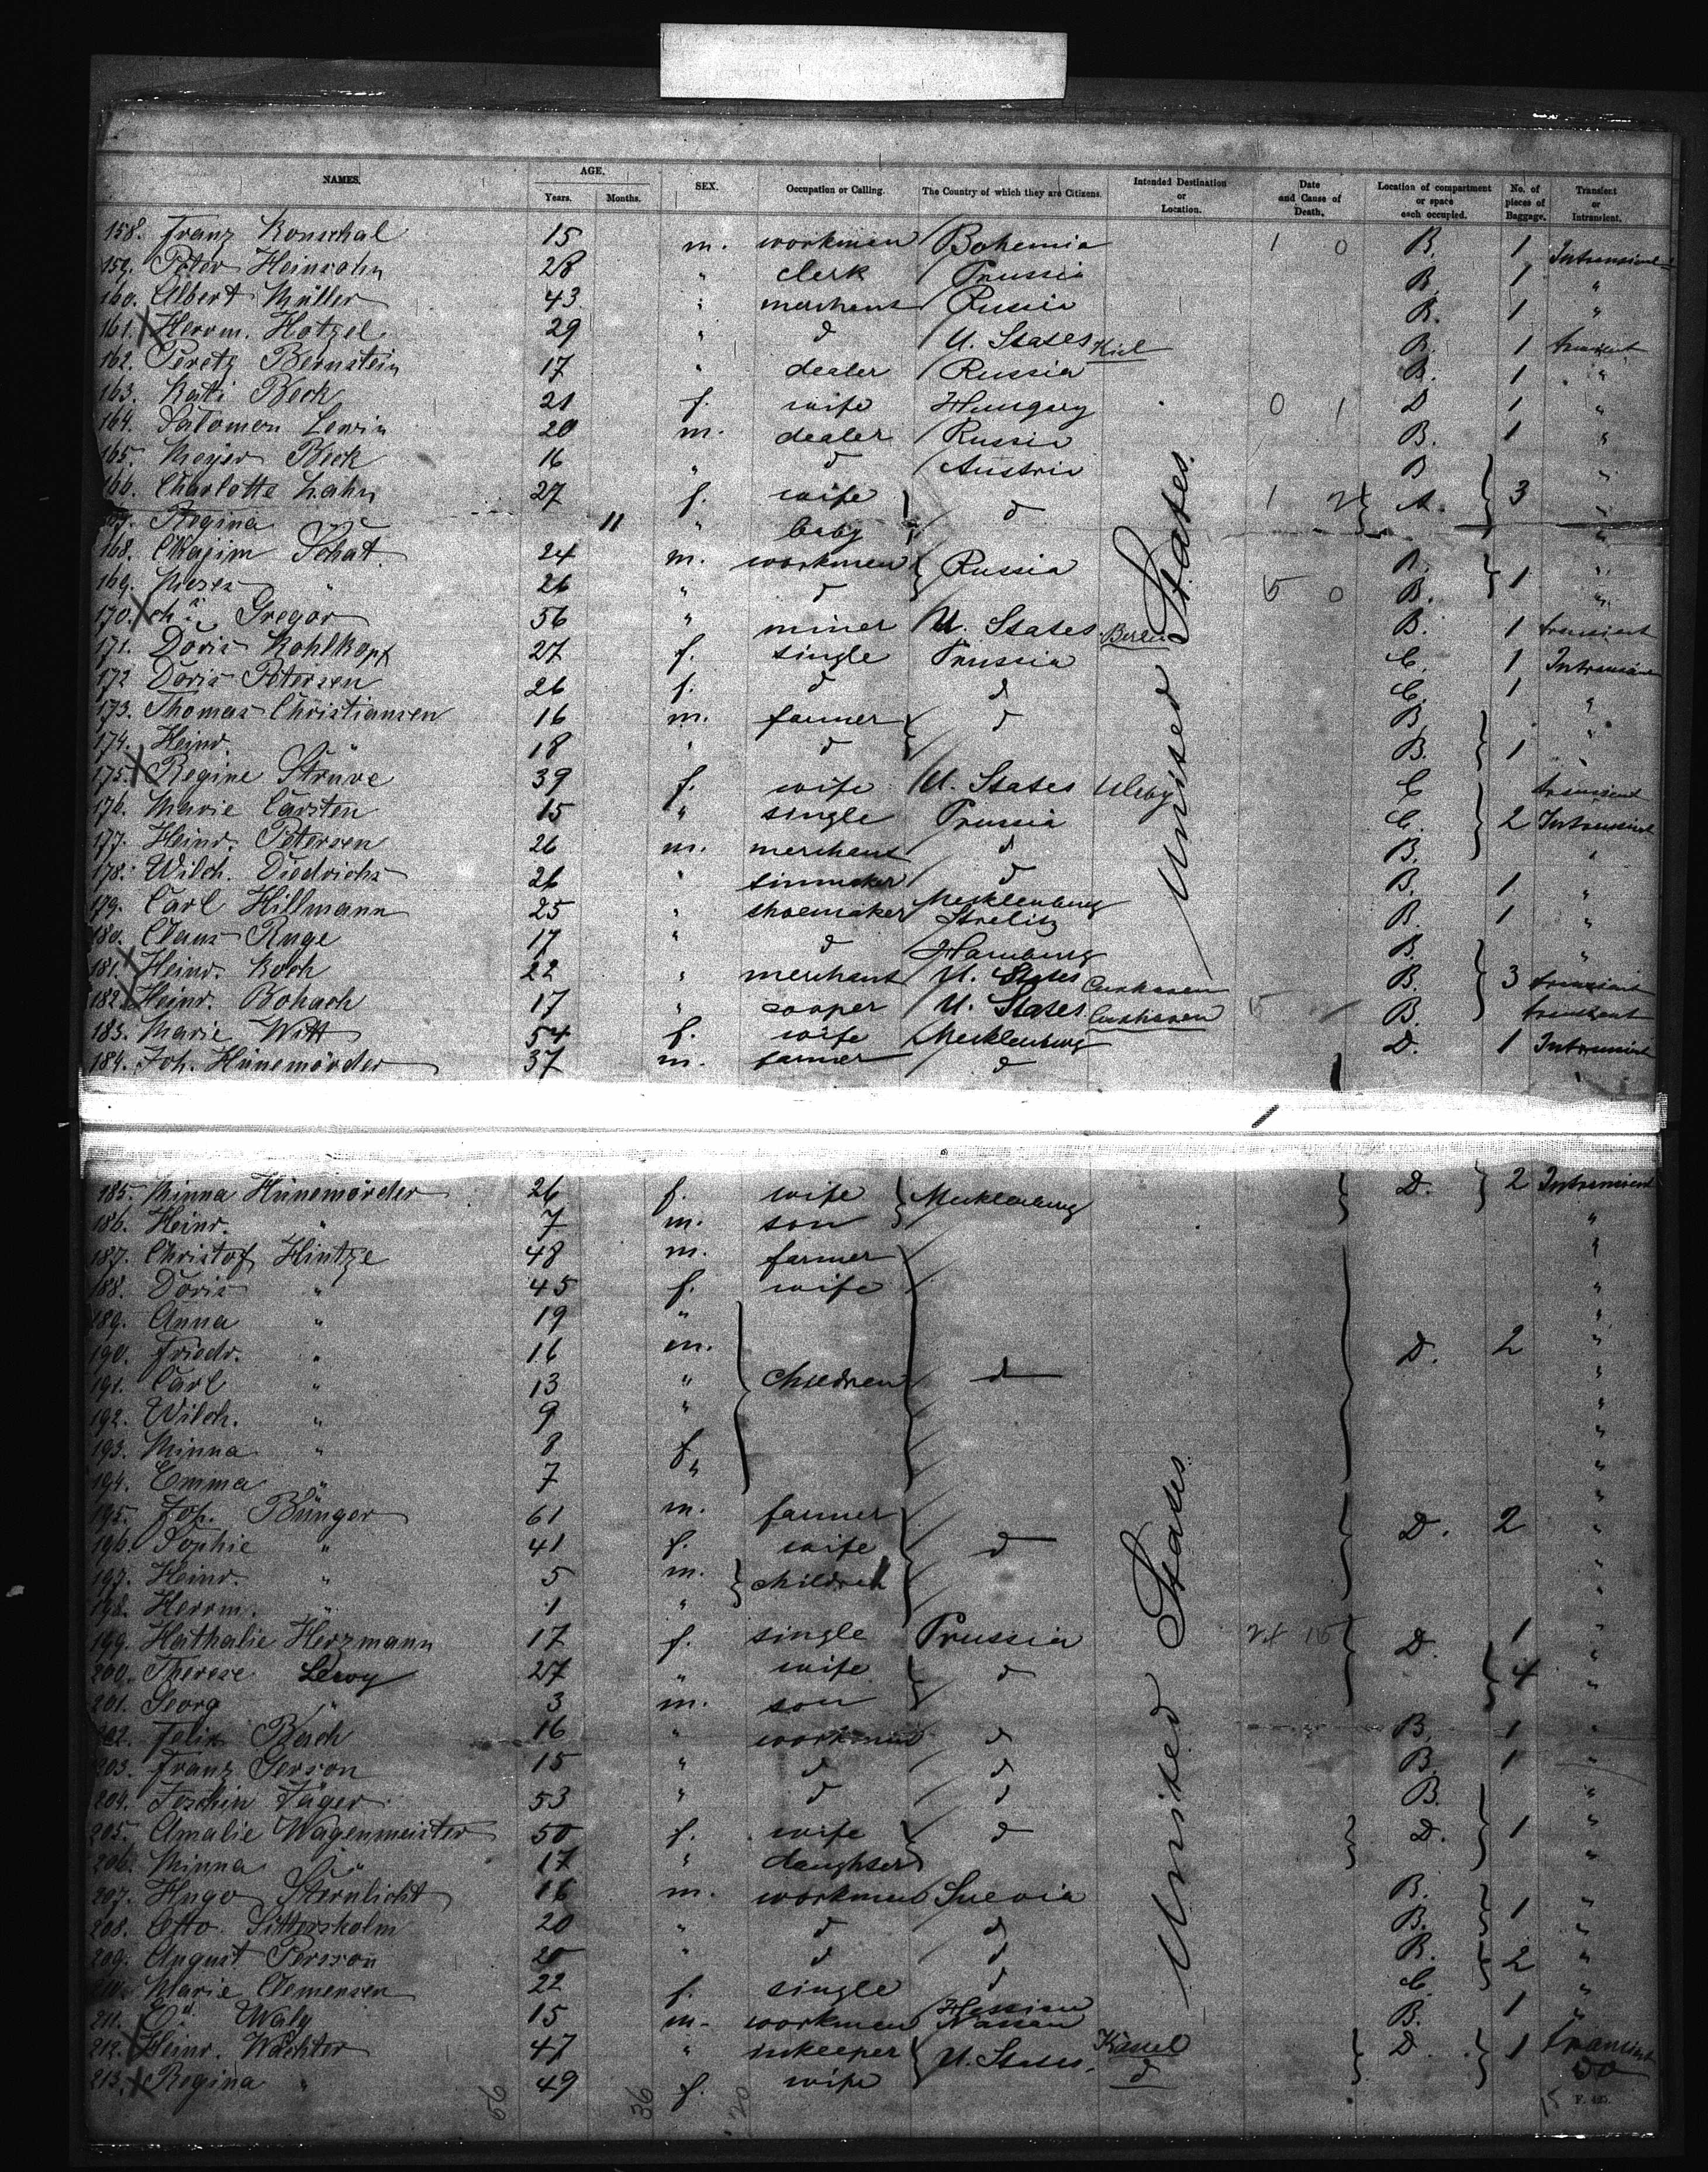 NAMES. AGE. Years. Months. SEX. Occupation or Calling. The Country of which they are Citizens. Intended Destination or Location. Date and Cause of Death. Location of compartment or space each occupied. No. of pieces of Baggage. Transient or Intransient.
158. Franz Konschal 15 m. workman Bohemia 1 0 B. 1 Intransient
159. Peter Heinsohn 28 " clerk Prussia B. 1 "
160. Albert Müller 43 " merchant Russia B. 1 "
161. X Herrm. Hotzel 29 " d U. States Kiel B. 1 transient
162. Peretz Bernstein 17 " dealer Russia B. 1 "
163. Kati Beck 21 f. wife Hungary 0 1 D 1 "
164. Salomon Lewin 20 m. dealer Russia B. 1 "
165. Meyer Beck 16 " d Austria B "
166. Charlotte Lahn 27 f. wife d 1 2 A. 3 "
167. Regina 11 " baby "
168. Chajim Schat 24 m. workmen Russia B. "
169. Moses " 26 " d 5 0 B. 1 "
170. X Gregor 56 " miner U. States Berlin B. 1 transient
171. Doris Kohlkopf 27 f. single Prussia C. 1 Intransient
172 Doris Petersen 26 f. d d C. 1 "
173. Thomas Christiansen 16 m. farmer d B. "
174. Heinr. " 18 " d B. 1 "
175. X Regine Struve 39 f. wife U. States C transient
176. Marie Carsten 15 " single Prussia C. 2 Intransient
177. Heinr. Petersen 26 m. merchant d B. "
178. Wilh. Diedrichs 26 " tinmaker d B. 1 "
179. Carl Hillmann 25 " shoemaker Mecklenburg Strelitz B. 1 "
180. Claus Ruge 17 " d Hamburg B. "
181. X Heinr. Koch 22 " merchant U. States Cuxhaven B. 3 transient
182 X Heinr. Bohach 17 " cooper U. States Cuxhaven B. transient
183. Marie Witt 54 f. wife Mecklenburg D. 1 Intransient
184. Joh. Hünemörder 37 m. farmer d "
United States
185. Minna Hünemörder 26 f. wife Mecklenburg D. 2 Intransient
186. Heinr. " 7 m. son "
187. Christof Hintze 48 m. farmer "
188. Doris " 45 f. wife "
189. Anna " 19 " "
190. Friedr. " 16 m. D. 2 "
191. Carl " 13 " children d "
192. Wilh. " 9 " "
193. Minna " 8 f. "
194. Emma " 7 " "
195. Joh. Bünger 61 m. farmer "
196. Sophie " 41 f. wife d D. 2 "
197. Heinr. " 5 m. children "
198. Herrm. " 1 " "
199. Nathalie Herzmann 17 f. single Prussia 24 15 D. 1 "
200. Therese Leroy 27 " wife d 4 "
201. Georg " 3 m. son
202. Felix Bach 16 " workman d B. 1 "
203. Franz Gerson 15 " d d B. 1 "
204. Jäger 53 " d d B. "
205. Amalie Wagenmeister 50 f. wife d D. 1 "
206. Minna " 17 " daughter "
207. Hugo Sternlicht 16 m. workmen Suevia B. 1 "
208. Otto Sitterskolm 20 " d d B. "
209. August Persson 20 " d d B. 2 "
210. Marie Clemensen 22 f. single d C. "
211. Ed. Waly 15 m. workmen Hessian Nassau B. 1 "
212. X Heinr. Wächter 47 " inkeeper U. States. Kassel D. 1 transient
213. X Regina " 49 f. wife d do
United States
56 36 20 15